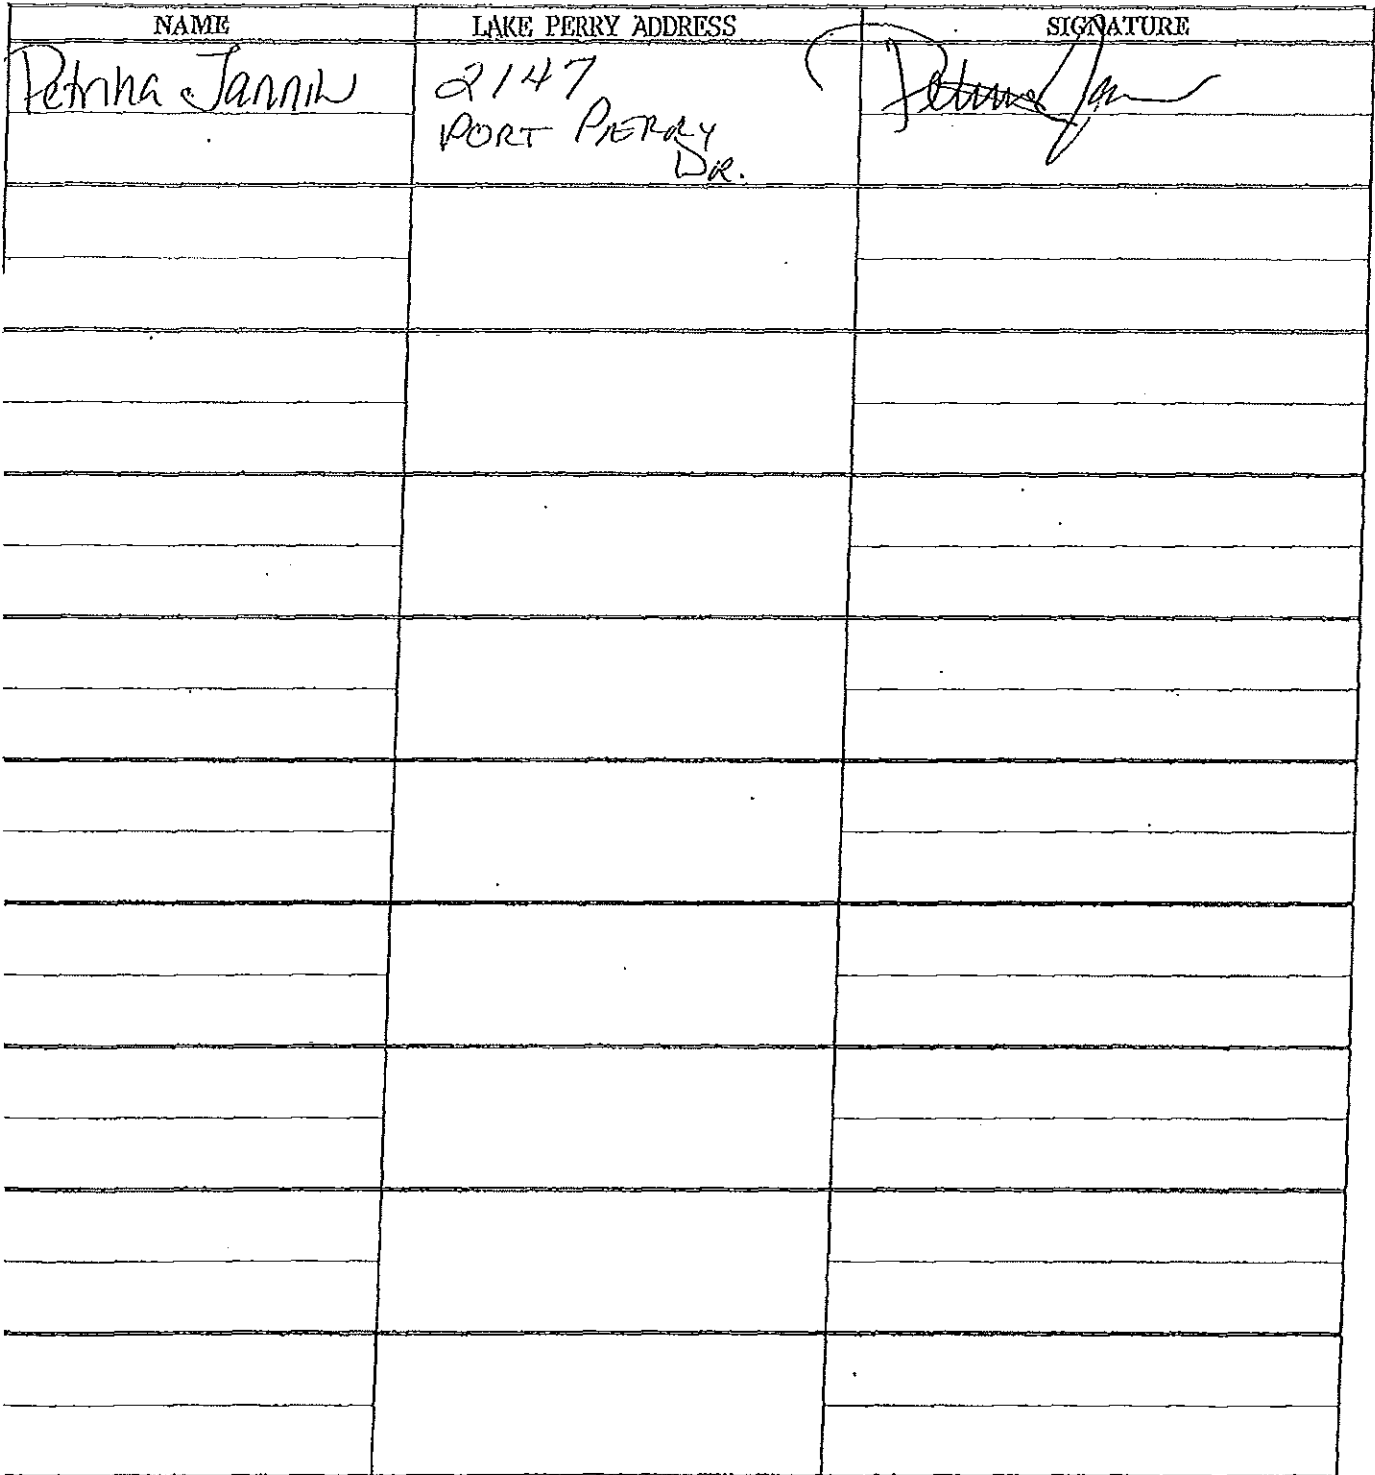 NAME LAKE PERRY ADDRESS SIGNATURE
Petrina Jannin 2147
PORT PERRY
DR.